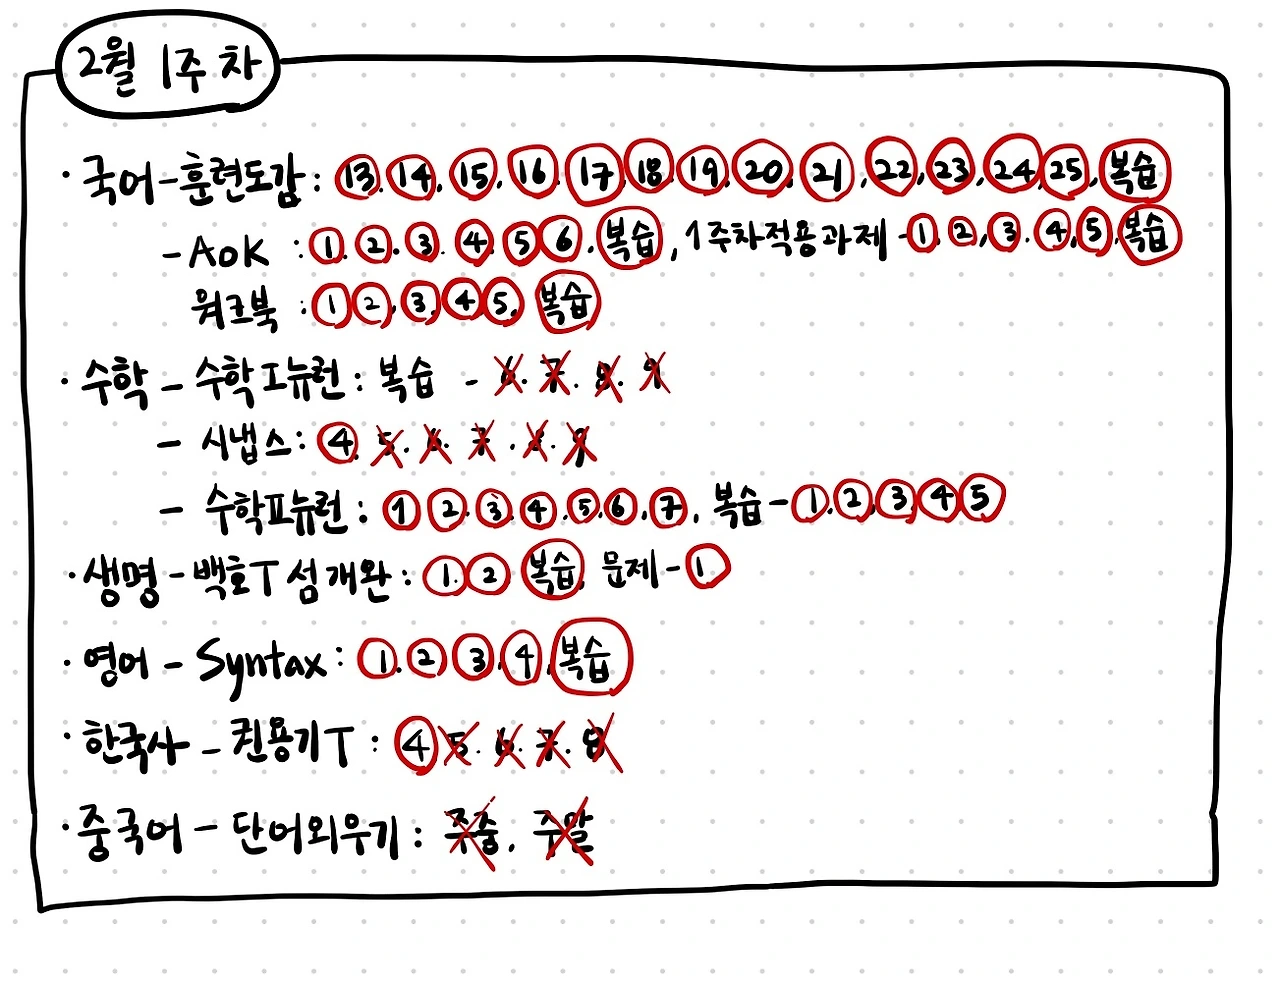 2월 1주차
· 국어 - 훈련도감 : 13, 14, 15, 16, 17, 18, 19, 20, 21, 22, 23, 24, 25, 복습
- AOK : 1, 2, 3, 4, 5, 6, 복습, 1주차적용과제 - 1, 2, 3, 4, 5, 복습
워크북 : 1, 2, 3, 4, 5, 복습
· 수학 - 수학I뉴런 : 복습 - 6. 7. 8. 9
- 시냅스 : 4. 5. 6. 7. 8. 9
- 수학II뉴런 : 1, 2, 3, 4, 5, 6, 7, 복습 - 1, 2, 3, 4, 5
· 생명 - 백호T 섬개완 : 1. 2 복습, 문제 - 1
· 영어 - Syntax : 1. 2. 3. 4. 복습
· 한국사 - 권용기T : 4 5. 6. 7. 8
· 중국어 - 단어외우기 : 주중, 주말